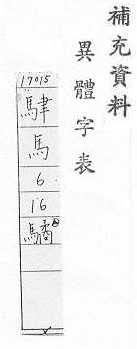 補充資料
異體字表
17015
馬
6
16
驈